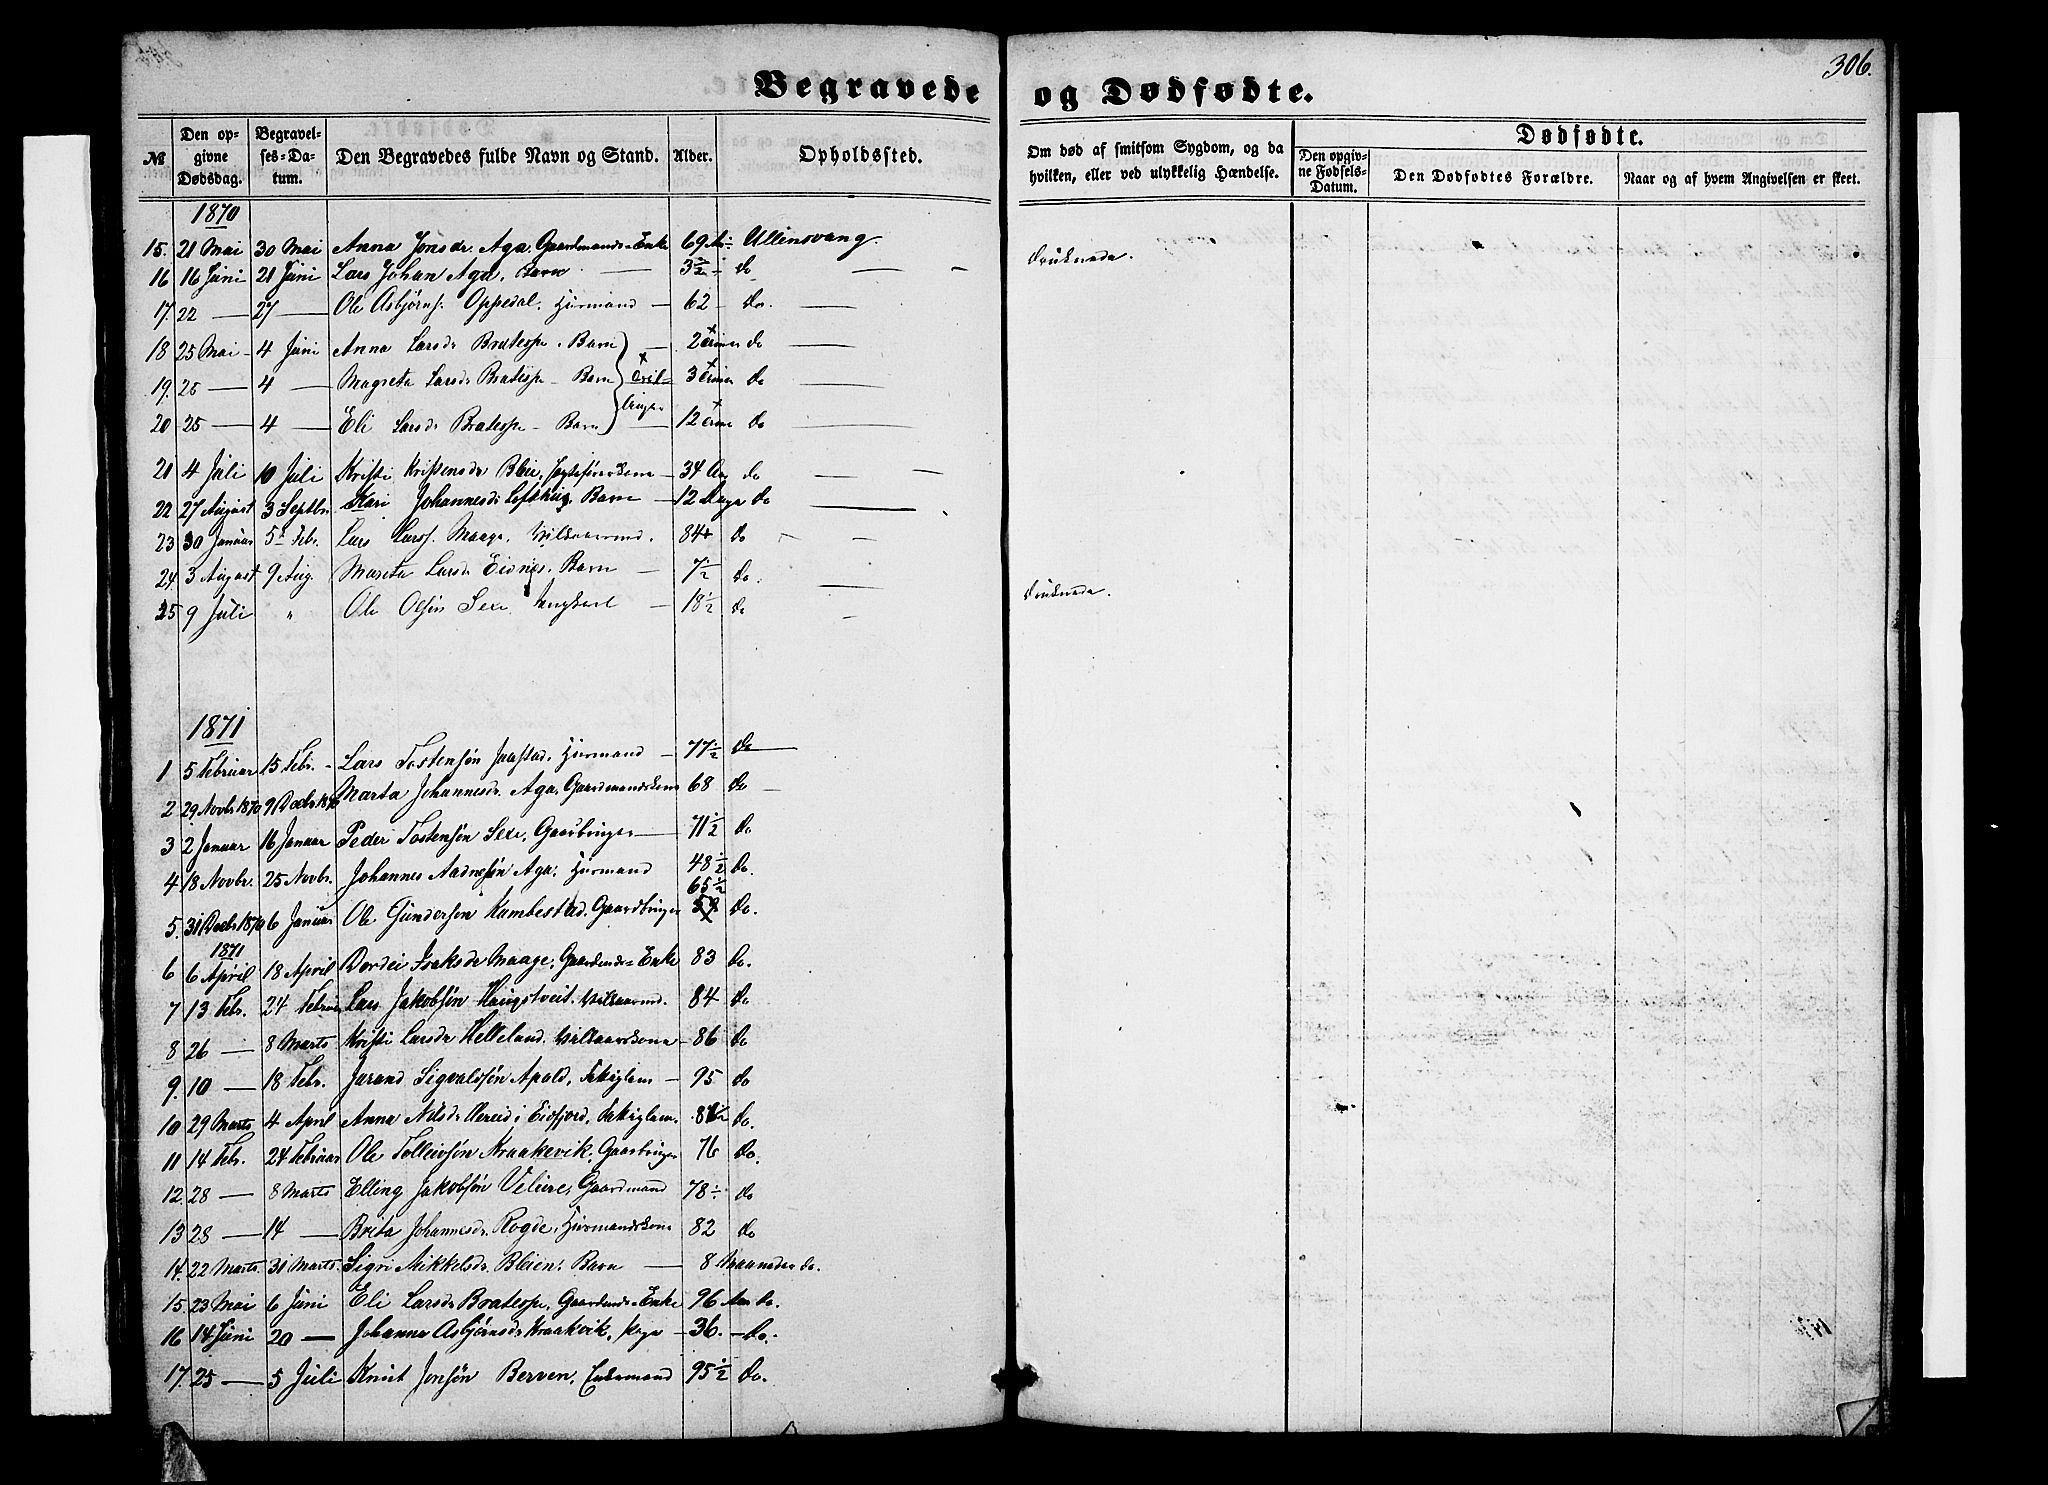 306.
Begravede og Dødfødte.
№
Den opgivne Dødsdag.
Begravelses-Datum.
Den Begravedes fulde Navn og Stand.
Alder.
Opholdssted.
Om død af smitsom Sygdom, og da hvilken, eller ved ulykkelig Hændelse.
Dødfødte.
Den opgivne Fødsels-Datum.
Den Dødfødtes Forældre.
Naar og af hvem Angivelsen er skeet.
1870
15. 21 Mai 30 Mai Anna Jonsdr. Aga, Gaardmands-Enke 69 Ullensvang.
16 16 Juni 21 Juni Lars Johan Aga, Barn — 3 do — — druknede.
17. 22 — 27 — Ole Asbjørns. Oppedal, Huusmand — 62 - do. —
18 25 Mai - 4 Juni Anna Larsdr Bratespe, Barn — 2 do —
19. 25 — 4 — Magreta Larsdr Bratespe - Barn tril- 3 do —
20 25 — 4 — Eli Larsdr Bratespe - Barn linger 12 do —
21 4 Juli 10 Juli Kristi Kristensdr Bleie, — 34 Aar do —
22 27 August 3 Septbr. Kari Johannesdr Lofthuus, Barn — 12 Dage do —
23 30 Januar 5 Febr. Lars Larss. Maage, Vilkaarmd. 84 do -
24. 3 August 9 Aug. Mareta Larsdr Eidnes, Barn — 7 1/2 do. —
25 9 Juli " Ole Olsøn Sexe, Ungkarl — 18 1/2 do — druknede.
1871
1 5 Februar 15 Febr. - Lars Tostensøn Jaastad, Huusmand — 77 1/2 do
2 29 Novbr 1870 9 Decbr 1870 Marta Johannesdr. Aga, Gaardmandskone 68 do —
3 2 Januar 16 Januar Peder Tostensøn Sexe, Gaardbruger — 71 1/2 do
4 18 Novbr. 25 Novbr. Johannes Aadnesøn Aga, Huusmand 48 1/2 do.
65 1/2
5. 31 Decbr 1870 6 Januar Ole Gundersøn Kambestad, Gaardbruger do.
1871
6 6 April 18 April Dordei Isaksdr Maage, Gaardmds-Enke 83 do.
7 13 Febr. 24 Februar Lars Jakobsøn Haugstveit, Vilkaarmd. 84 do
8 26 — 8 Marts Kristi Larsdr Helleland, Vilkaarskone - 86 do
9. 10 — 18 Febr. Jarand Sigvaldsøn Apold, Fattiglem — 95 do
10 29 Marts 4 April Anna Nilsdr Øvreid i Eidfjord, Fattiglem. 81 1/2 do.
11 14 Febr. 24 Februar Ole Tolleivsøn Kraakevik, Gaardbruger 76 do.
12. 28 — 8 Marts Elling Jakobsøn Velure, Gaardmand 78 do
13 28 — 14 — Brita Johannesdr. Rogde, Huusmandskone 82 do
14. 22 Marts 31 Marts. Sigri Mikkelsdr. Bleien, Barn — 8 Maaneder do.
15. 23 Mai 6 Juni Eli Larsdr Bratespe, Gaardmds-Enke 96 Aar do.
16 14 Juni 20 — Johanna Asbjørnsdr Kraakvik, Pige — 36. — do.
17. 25 — 5 Juli Knut Jonsøn Berven, Enkemand 95 1/2 do.